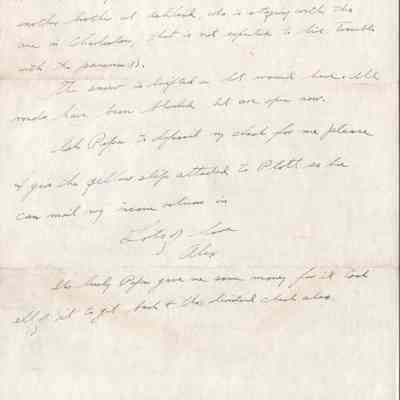 another brother at         , who is staying with the
one in Charleston, that is not expected to live         
with the pneumonia.
The snow is drifted a lot around here. The
roads have been blocked but are open now.
Ask Papa to deposit my check for me please
& give the yellow slip attached to Plott so he
can mail my income return in
Lots of love
Alex
It's lucky Papa gave me some money for it took
all of it to get back & the dividend check also.